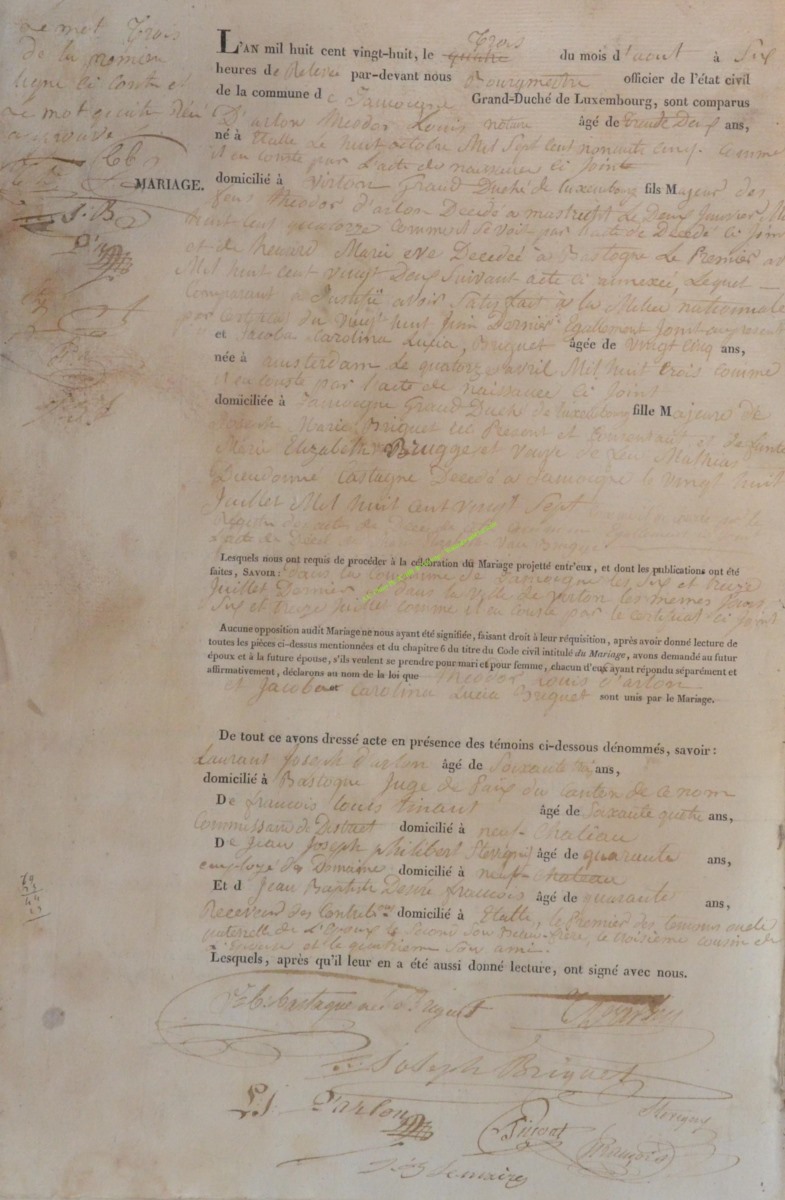 Le mot Trois
de la première
ligne ci contre et
Le mot quatre
approuvé
MARIAGE.
L'AN mil huit cent vingt-huit, le quatre Trois du mois d'aout à Six
heures de Relevé par-devant nous Bourgmestre officier de l'état civil
de la commune de Jamoigne Grand-Duché de Luxembourg, sont comparus
D'arlon Theodor Louis notaire âgé de trente Deux ans,
né à Etalle Le huit octobre Mil Sept Cent nonante cinq comme
il en conste par L'acte de naissance ci Joint
domicilié à Virton Grand Duché de Luxembourg fils Majeur des
feus Theodor D'arlon Decédé a mastricht Le Deux Janvier Mil
huit cent quatorze comme il se voit par l'acte de Décès ci Joint
et de Marie eve Decedée à Bastogne Le Premier
Mil huit cent vingt Deux Suivant acte ci annexée, Lequel
Comparant a Justifié avoir Satisfait a la Milice nationale
par certificat du vingt huit Juin Dernier Egallement Joint au present
et Jacoba Carolina Lucia, Briquet âgée de vingt Cinq ans,
née à amsterdam Le quatorze avril Mil huit trois comme
il en conste par l'acte de naissance ci Joint
domiciliée à Jamoigne Grand Duché de Luxembourg fille Majeure de
Joseph Marie Briquet ici Present et Consentant et de feunte
Marie Elizabeth Brugge et veuve de feu Mathias
Dieudonné Castagne Decédé a Jamoigne le vingt huit
Juillet Mil huit cent vingt Sept
Registre des actes de Décès de cette Commune Egallement
L'acte de Décès
Lesquels nous ont requis de procéder à la célébration du Mariage projetté entr'eux, et dont les publications ont été
faites, SAVOIR: dans la commune de Jamoigne les Six et treize
Juillet Dernier et dans la ville de virton les memes Jours
Six et treize Juillet comme il en Conste par le certificat ci Joint
Aucune opposition audit Mariage ne nous ayant été signifiée, faisant droit à leur réquisition, après avoir donné lecture de
toutes les pièces ci-dessus mentionnées et du chapitre 6 du titre du Code civil intitulé du Mariage, avons demandé au futur
époux et à la future épouse, s'ils veulent se prendre pour mari et pour femme, chacun d'eux ayant répondu séparément et
affirmativement, déclarons au nom de la loi que Theodor Louis D'arlon
et Jacoba Carolina Lucia Briquet sont unis par le Mariage.
De tout ce avons dressé acte en présence des témoins ci-dessous dénommés, savoir:
Laurant Joseph d'arlon âgé de Soixante ans,
domicilié à Bastogne Juge de Paix du Canton de ce nom
De françois Louis tinant âgé de Soixante quatre ans,
Commissaire de District domicilié à neuf-Chateau
De Jean Joseph philibert Sterigny âgé de quarante ans,
employé des Domaine domicilié à neuf-chateau
Et d'Jean Baptiste Desiré françois âgé de quarante ans,
Receveur des Contributions domicilié à Etalle, le Premier des temoins oncle
paternelle de L'Epoux le Second Son Beau-frère, le troisieme cousin de
L'Epouse et le quatrieme Son ami.
Lesquels, après qu'il leur en a été aussi donné lecture, ont signé avec nous.
Castagne née Briquet
Joseph Briquet
L. J. D'arlon
Sterigny
Tinant
François